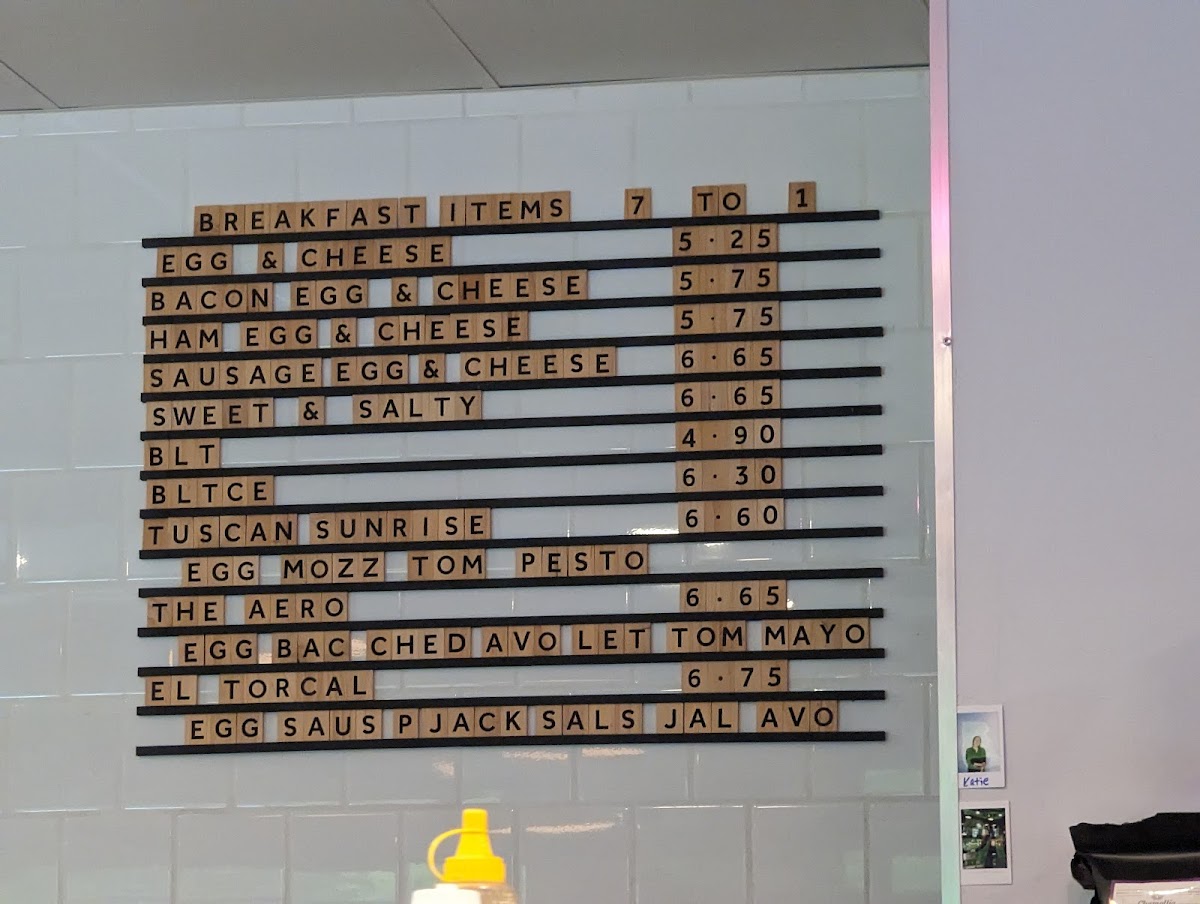 BREAKFAST ITEMS 7 TO 1
EGG & CHEESE 5.25
BACON EGG & CHEESE 5.75
HAM EGG & CHEESE 5.75
SAUSAGE EGG & CHEESE 6.65
SWEET & SALTY 6.65
BLT 4.90
BLTCE 6.30
TUSCAN SUNRISE 6.60
EGG MOZZ TOM PESTO
THE AERO 6.65
EGG BAC CHED AVO LET TOM MAYO
EL TORCAL 6.75
EGG SAUS P JACK SALS JAL AVO
Katie